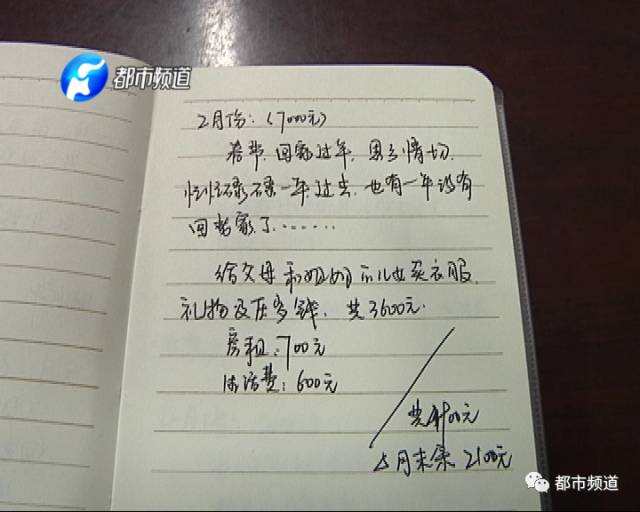 都市频道
2月份:(7000元)
春节,回家过年,思乡情切.
忙忙碌碌一年过去,也有一年没有
回老家了......
给父母和姐姐 买衣服,
礼物及压岁钱,共3600元.
房租:700元
生活费:600元
共4900元
2月末余 2100元
都市频道